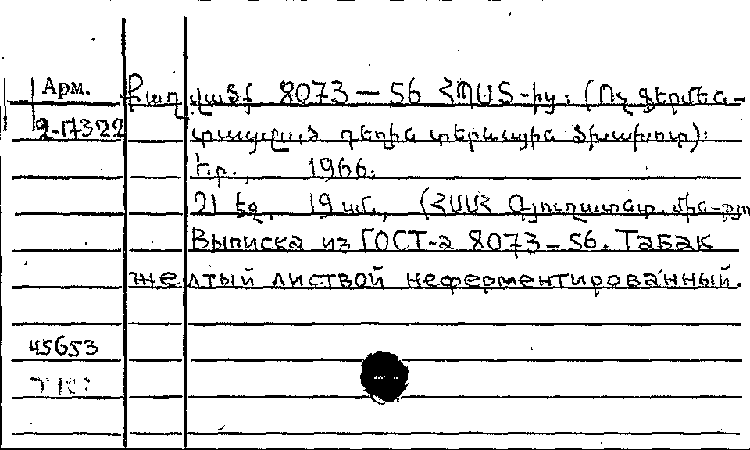 Арм. Քաղվածք 8073-56 ՀՊՍՏ-ից: (Ոչ ֆերմեն-
2-17322 տացված դեղին տերևային ծխախոտ):
Եր., 1966.
21 էջ. 19 սմ., (ՀՍՍՀ Գյուղատնտ. մին-րտ
Выписка из ГОСТ-а 8073-56. Табак
желтый листвой неферментированный.
45653